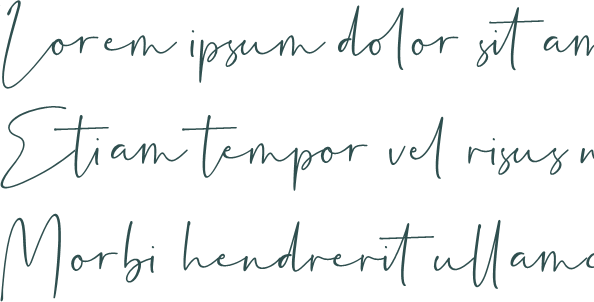 Lorem ipsum dolor sit am
Etiam tempor vel risus
Morbi hendrerit ullamc